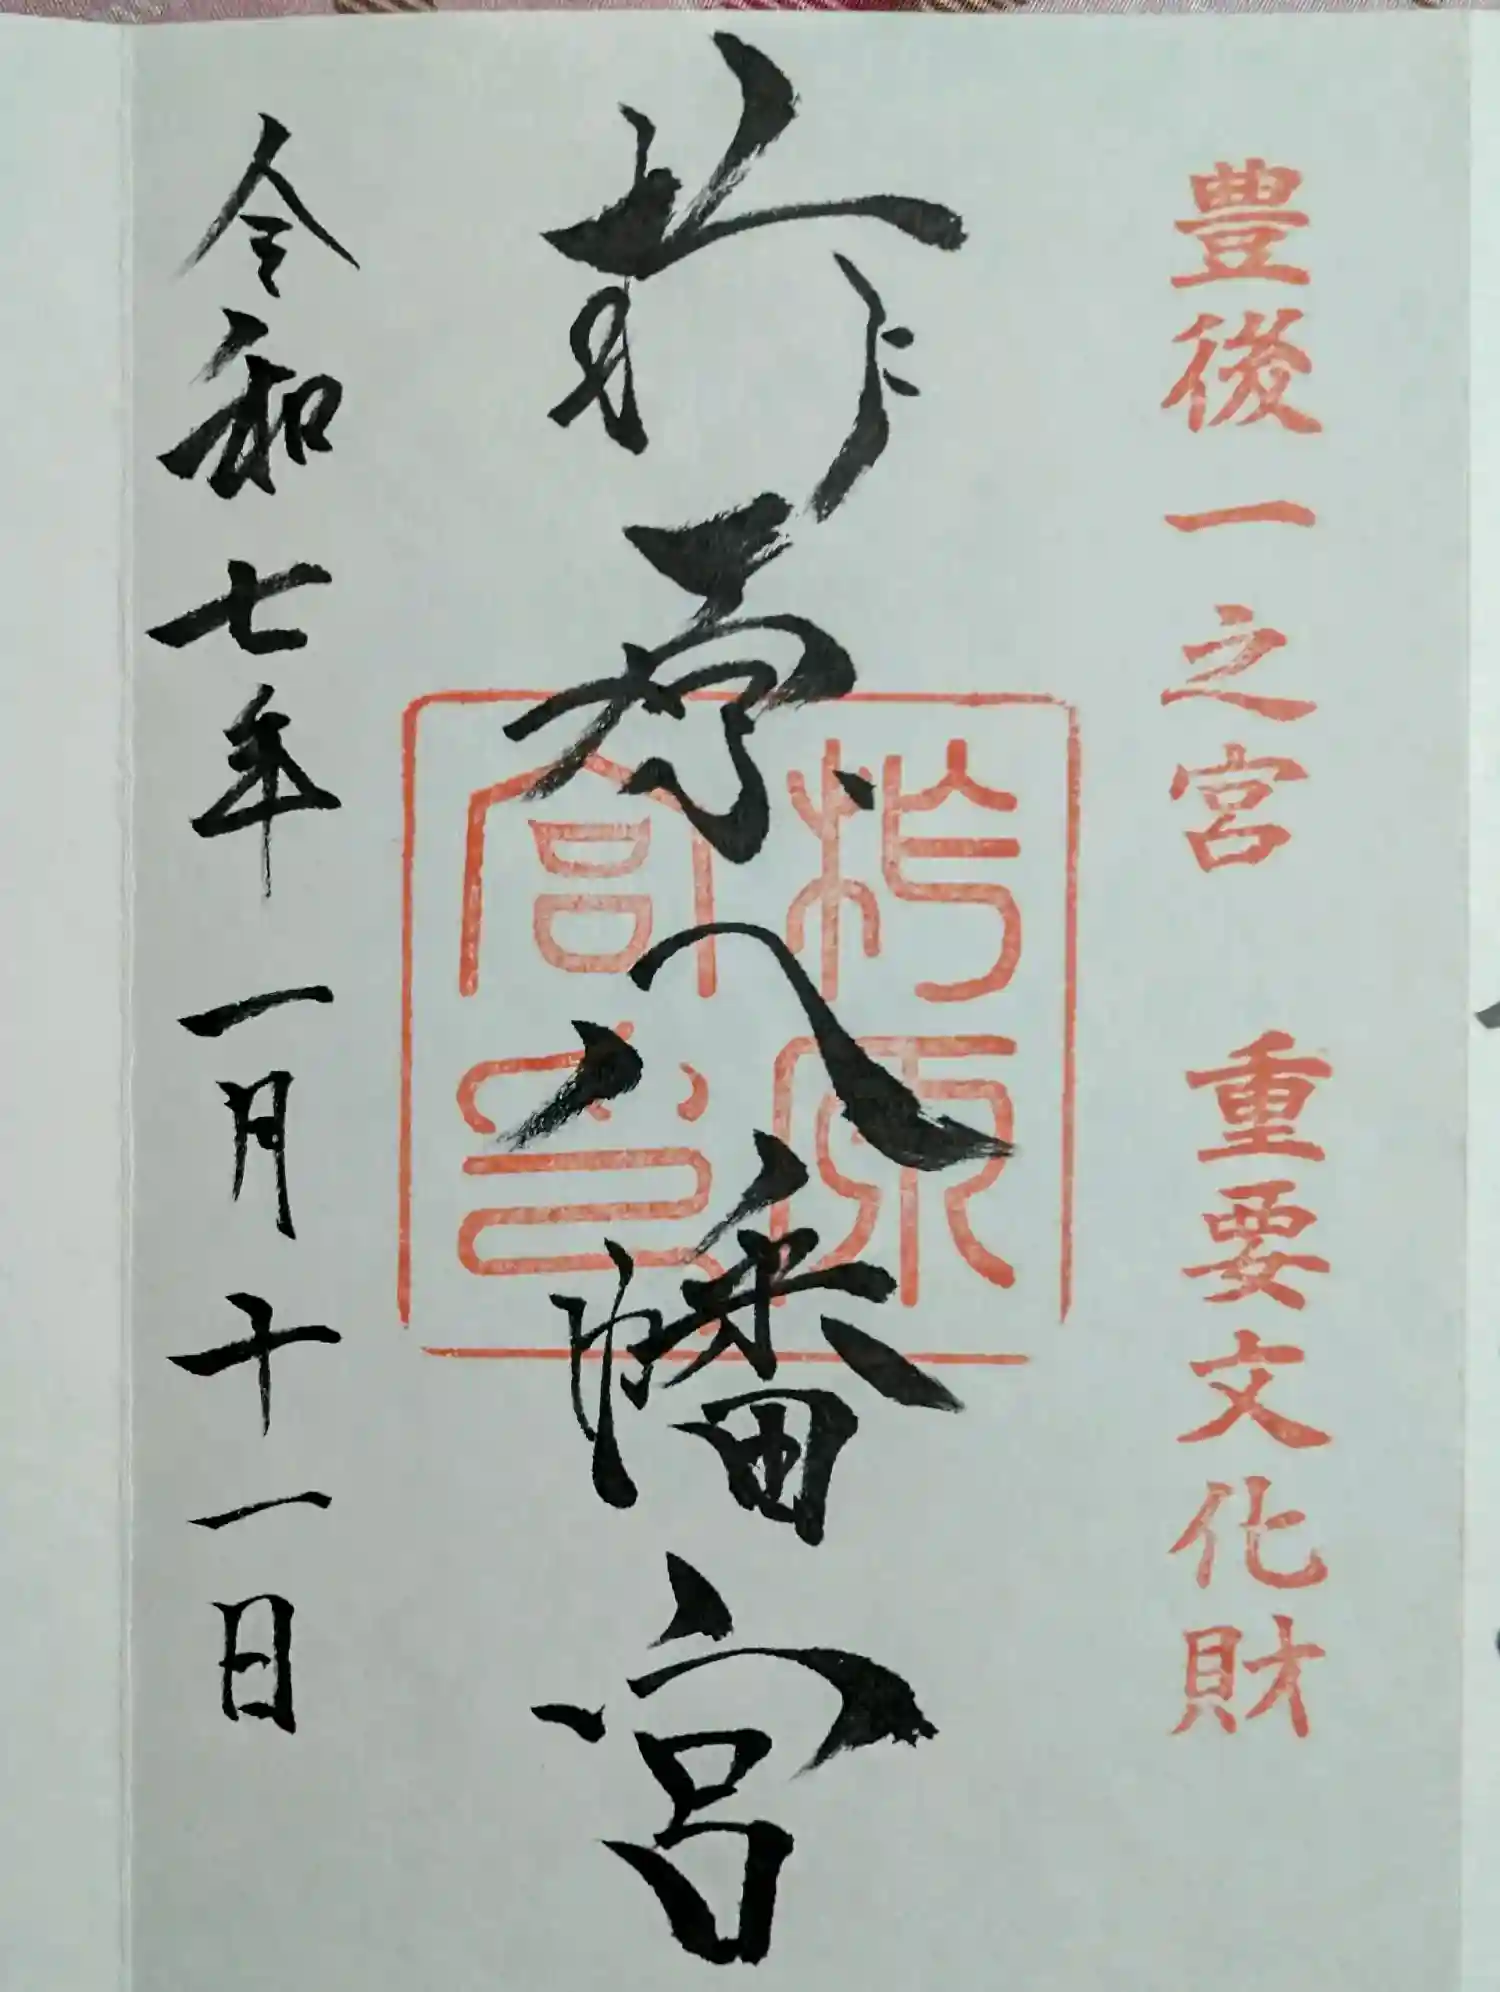 豊後一之宮 重要文化財
柞原八幡宮
柞原宮印
令和七年一月十一日